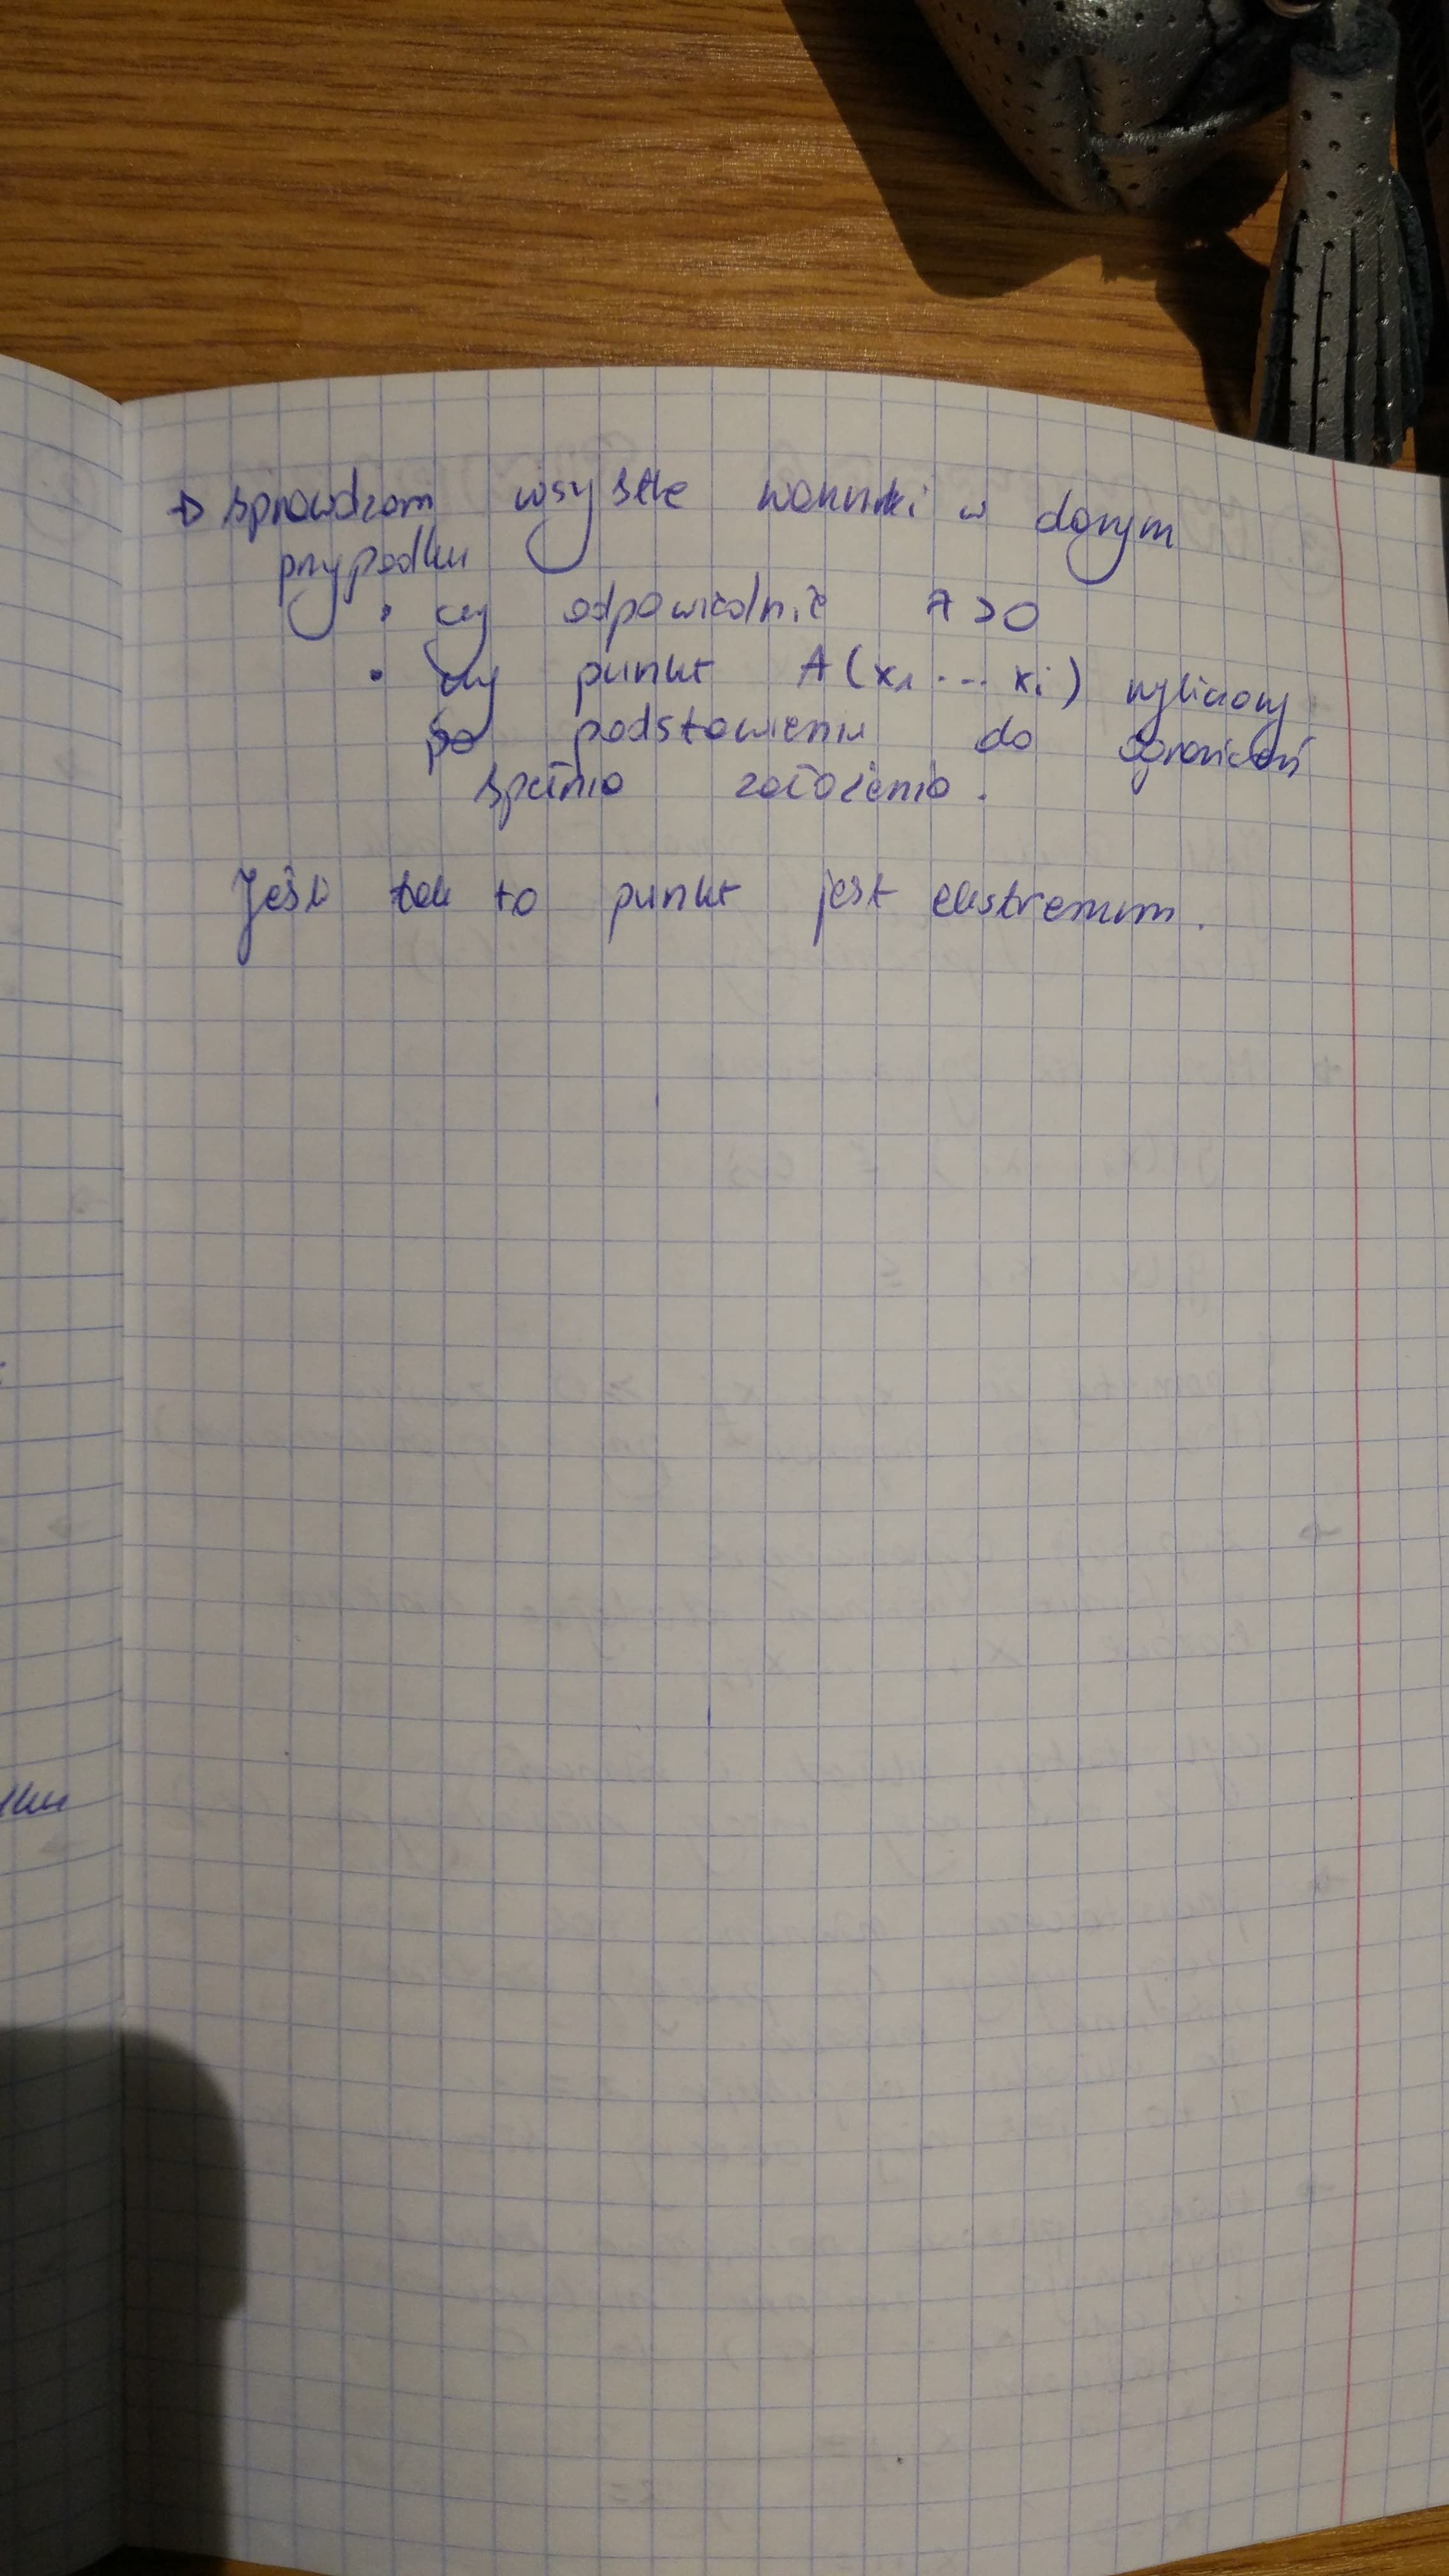 → sprawdzam wszystkie warunki w danym
przypadku
• czy odpowiednie λ > 0
• czy punkt A(x₁ ... xᵢ) wyliczony
po podstawieniu do ograniczeń
spełnia założenia.
Jeśli tak to punkt jest ekstremum.